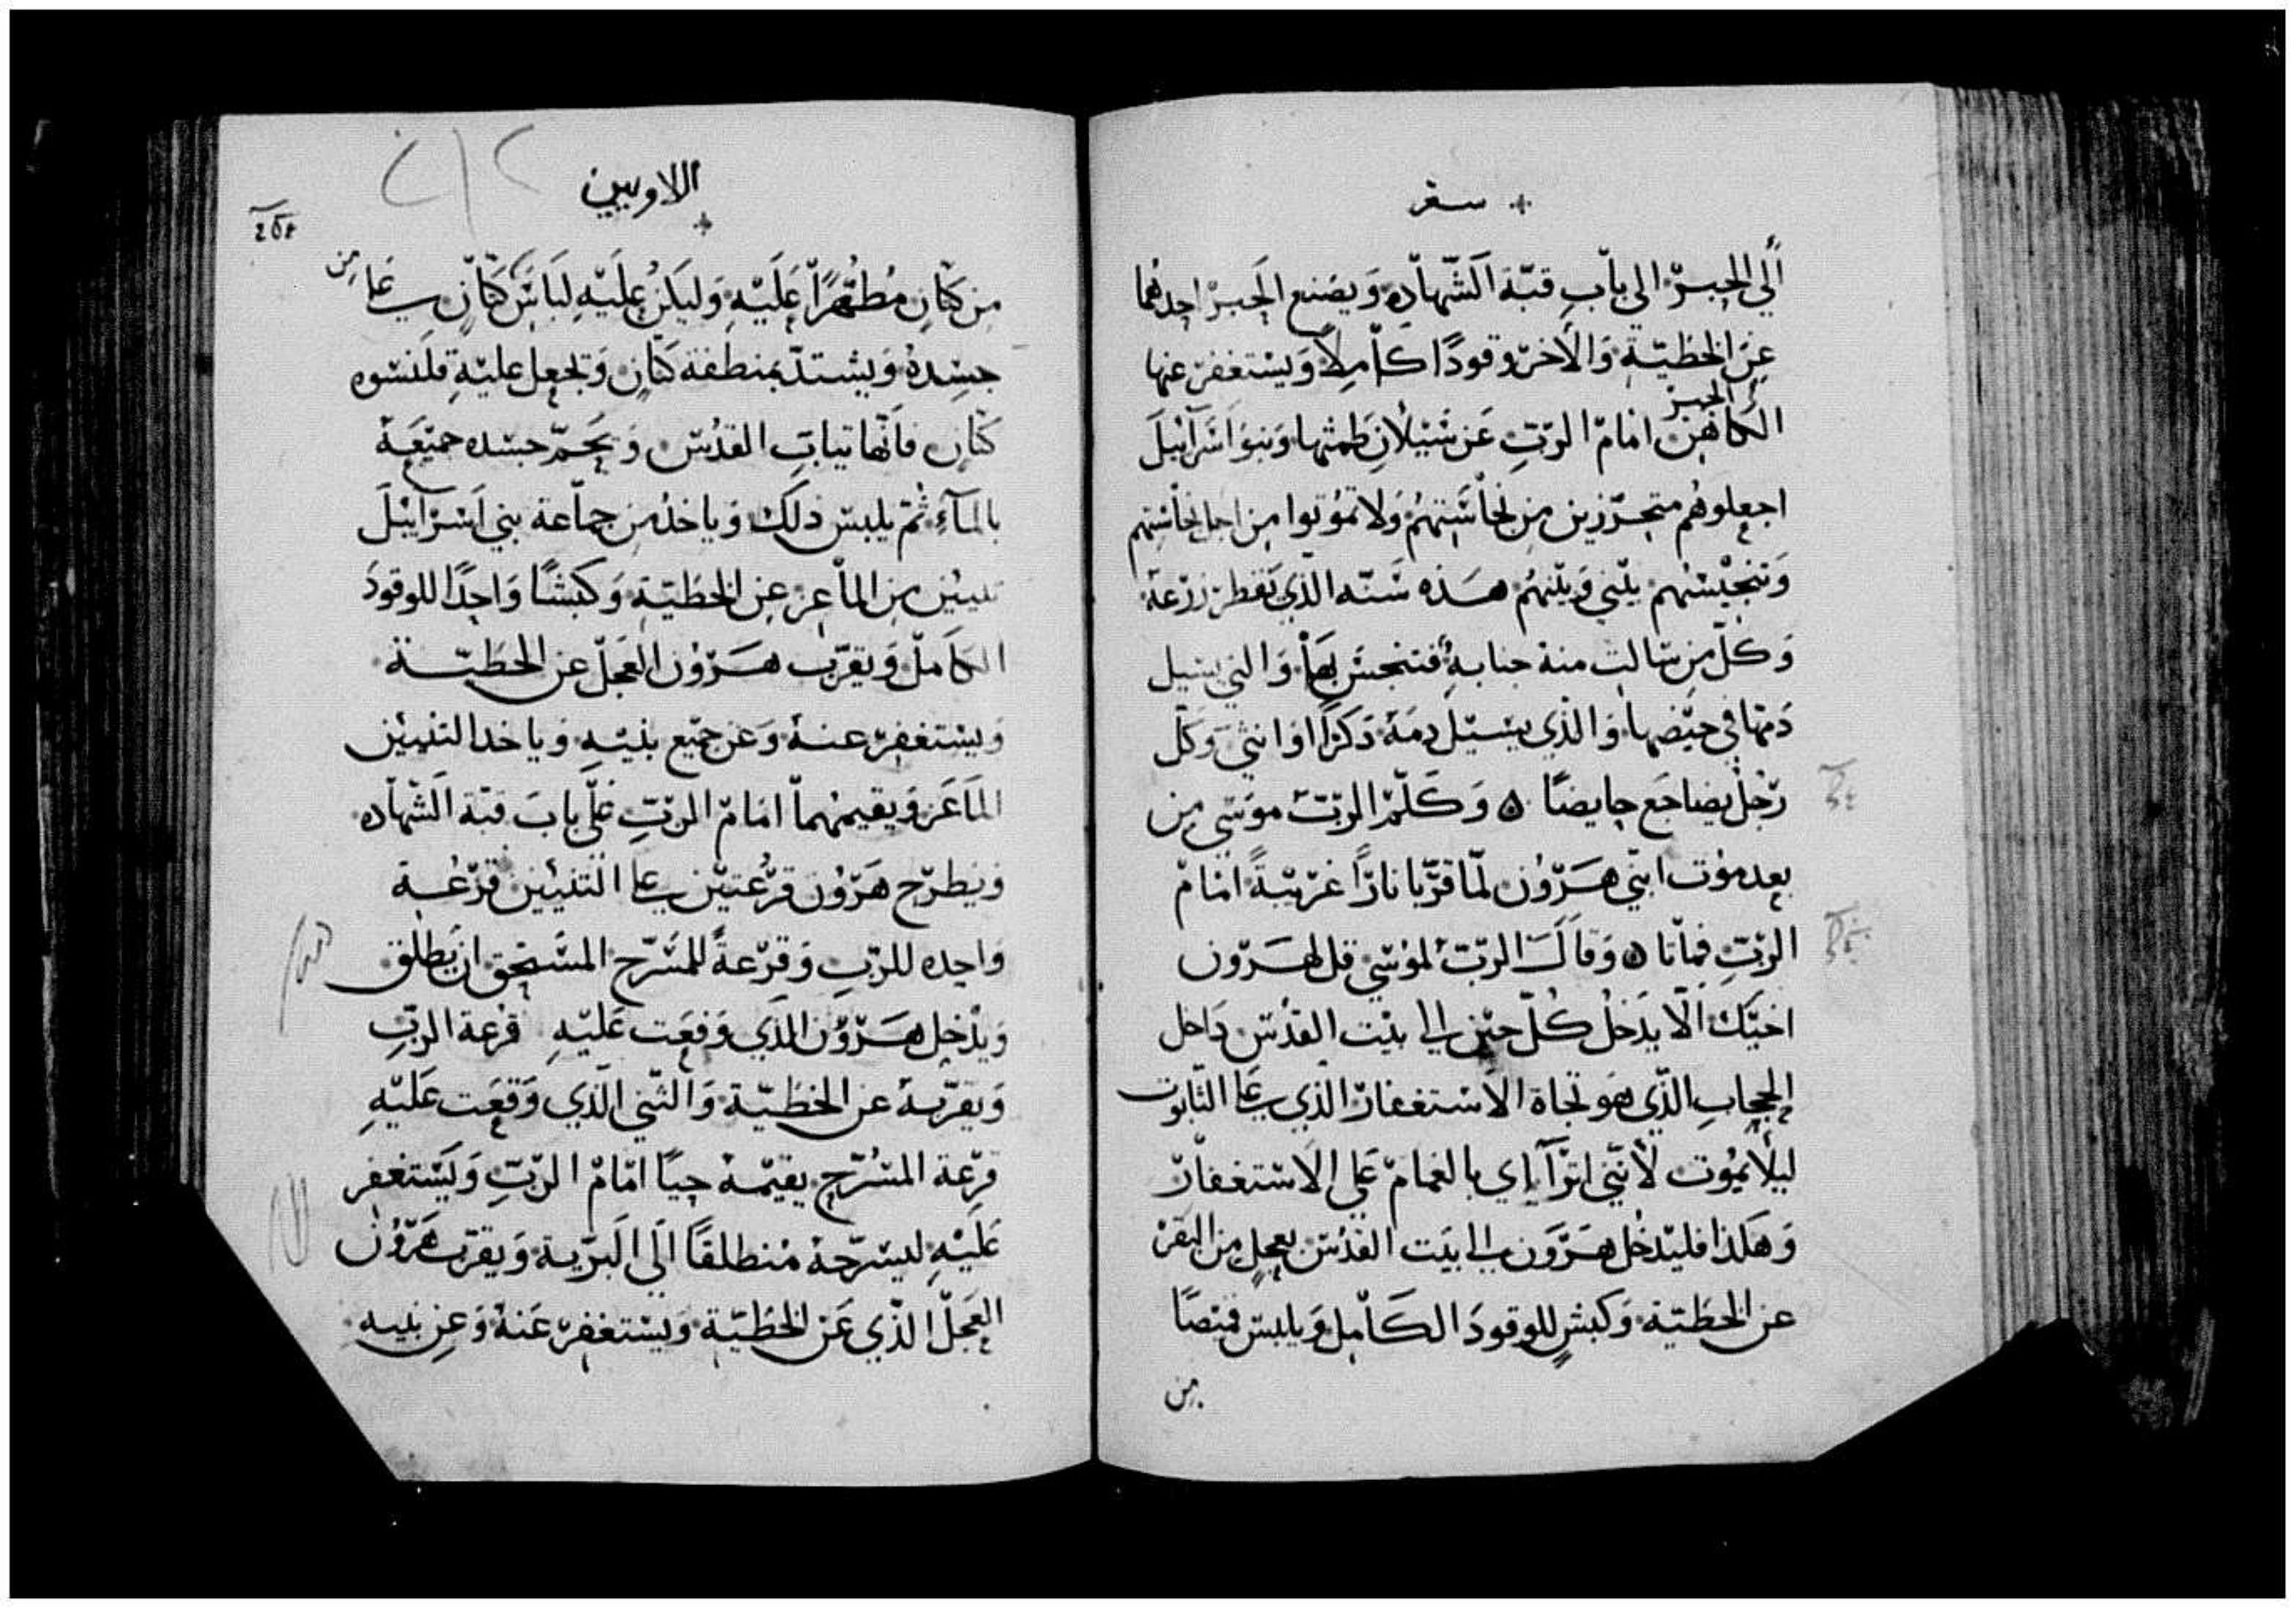 سفر
ألي الحبر الى باب قبة الشهاده ويصنع الحبر احدهما
عن الخطية والاخر وقودًا كاملاً ويستغفر عنها
الحبر
الكاهن امام الرب عن سيلان طمثها وبنو اسرائيل
اجعلوهم متحرزين من نجاستهم ولا تموتوا من اجل نجاستهم
وتنجيسهم بيتي وبينهم هذه سنه الذي تقطر زرعة
وكل من سالت منه جنابة فتنجس بها والتي يسيل
دمها في حيضها والذي يسيل دمه دكرًا او انثي وكل
رجل يضاجع حايضًا ۞ وكلم الرب موسي من
بعد موت ابني هرون لما قربا نارًا غريبةً امام
الرب فماتا ۞ وقال الرب لموسي قل لهرون
اخيك الا يدخل كل حين الى بيت القدس داخل
الحجاب الذي هو تجاة الاستغفار الذي على التابوت
ليلا يموت لأنني اترآ اي بالغمام على الاستغفار
وهكذا فليدخل هرون الى بيت القدس بعجل من البقر
عن الخطية وكبش للوقود الكامل ويلبس قميصًا
من
اللاويين
٢٥٤
من كتان مطهرًا عليه وليكن عليه لباس كتان على
من
جسده ويشتد بمنطقة كتان وتجعل علية قلنسوه
كتان فانها تياب القدس ويحم جسده جميعة
بالمآء ثم يلبس ذلك وياخذ من جماعة بني اسرائيل
تنيين من الماعز عن الخطية وكبشًا واحدًا للوقود
الكامل ويقرب هرون العجل عن الخطية
ويستغفر عنة وعن جميع بنيه وياخد التنيين
الماعز ويقيمهما امام الرب على باب قبة الشهاده
ويطرح هرون قرعتين على التنيين قرعة
واحده للرب وقرعةً للمسرح المستحق ان يطلق
ويدخل هرون الذي وقعت عليه قرعة الرب
ويقربة عن الخطية والتني الذي وقعت عليه
قرعة المسرح يقيمة حيًا امام الرب ويستغفر
عليه ليسرحة منطلقًا الى البرية ويقرب هرون
العجل الذي عن الخطية ويستغفر عنة وعن بنيه